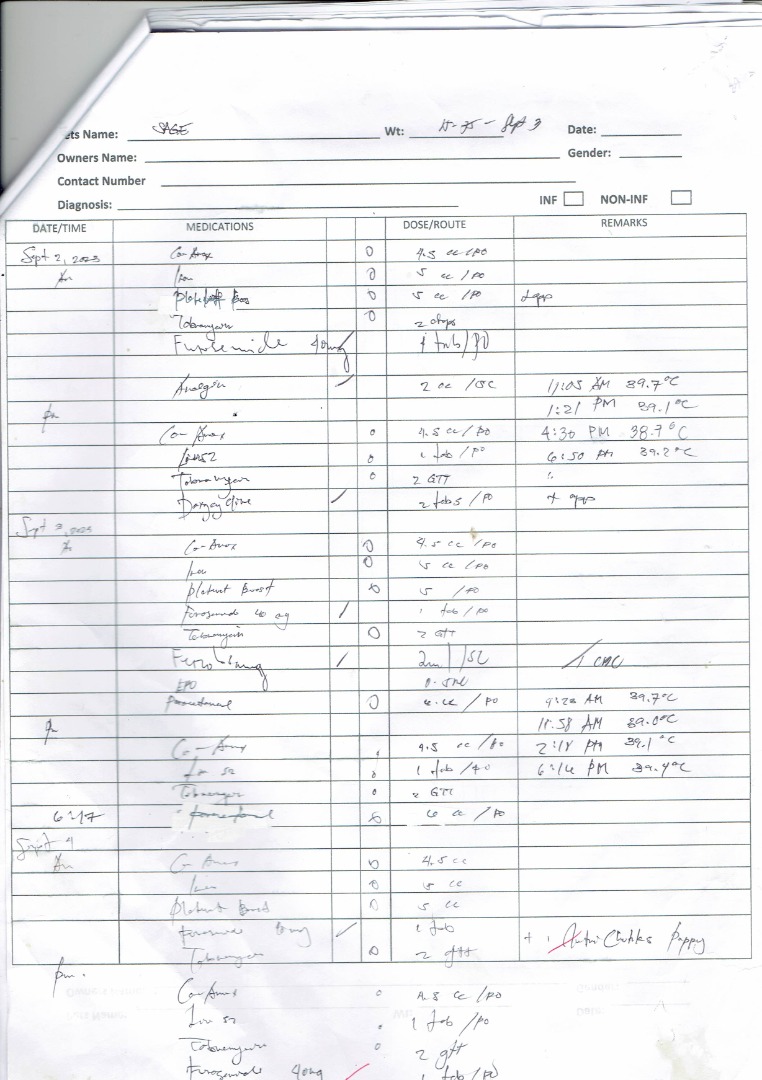 ets Name: SAGE Wt: 15.75 - Sept 3 Date:
Owners Name: Gender:
Contact Number
Diagnosis: INF NON-INF
DATE/TIME MEDICATIONS DOSE/ROUTE REMARKS
Sept 2, 2023 Co-Amox 0 4.5 cc /PO
Am 0 5 cc /PO
0 5 cc /PO
Tobramycin 0 2 drops
Furosemide 40mg / 1 tab/PO
Analgin / 2 cc /SC 11:05 AM 39.7°C
pm 1:21 PM 39.1°C
Co-Amox 0 4.5 cc /PO 4:30 PM 38.7°C
Liv 52 0 1 tab /PO 6:50 PM 39.2°C
Tobramycin 0 2 GTT
/ 2 tabs /PO
Sept 3, 2023
Am Co-Amox 0 4.5 cc /PO
0 5 cc /PO
Platelet Boost 0 5 /PO
Furosemide 40 mg / 1 tab /PO
Tobramycin 0 2 GTT
/ 2ml /SC
EPO 0.5ml
0 6 cc /PO 9:20 AM 39.7°C
pm 11:58 AM 39.0°C
Co-Amox 4.5 cc /PO 2:18 PM 39.1°C
Liv 52 1 tab /PO 6:14 PM 39.4°C
Tobramycin 0 2 GTT
6:17 0 6 cc /PO
Sept 4
Am Co-Amox 0 4.5 cc
0 5 cc
Platelet Boost 0 5 cc
Furosemide 40mg / 1 tab
Tobramycin 0 2 gtt + 1 Nutri Chunks Puppy
pm.
Co-Amox 0 4.5 cc /PO
Liv 52 1 tab /PO
Tobramycin 0 2 gtt
Furosemide 40mg / 1 tab /PO